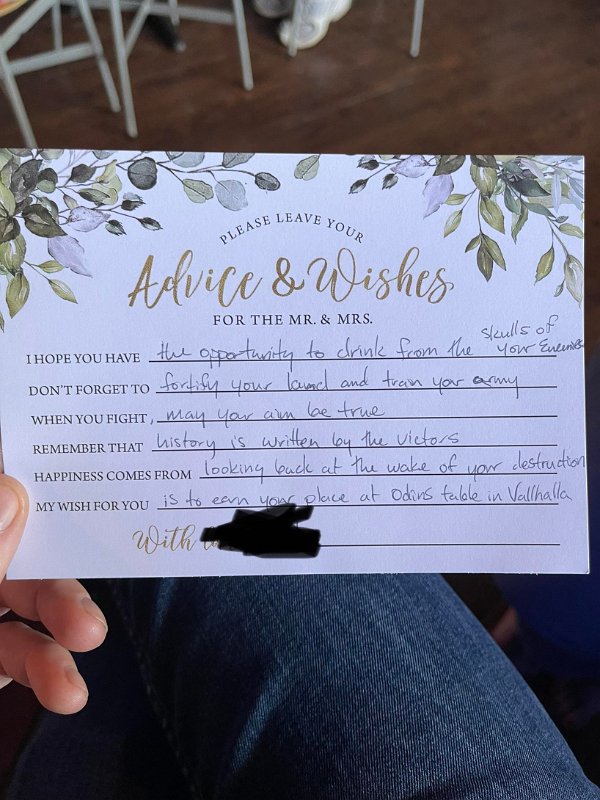 PLEASE LEAVE YOUR
Advice & Wishes
FOR THE MR. & MRS.
I HOPE YOU HAVE the opportunity to drink from the skulls of your Enemies
DON'T FORGET TO fortify your land and train your army
WHEN YOU FIGHT, may your aim be true
REMEMBER THAT history is written by the victors
HAPPINESS COMES FROM looking back at the wake of your destruction
MY WISH FOR YOU is to earn your place at Odins table in Vallhalla
With